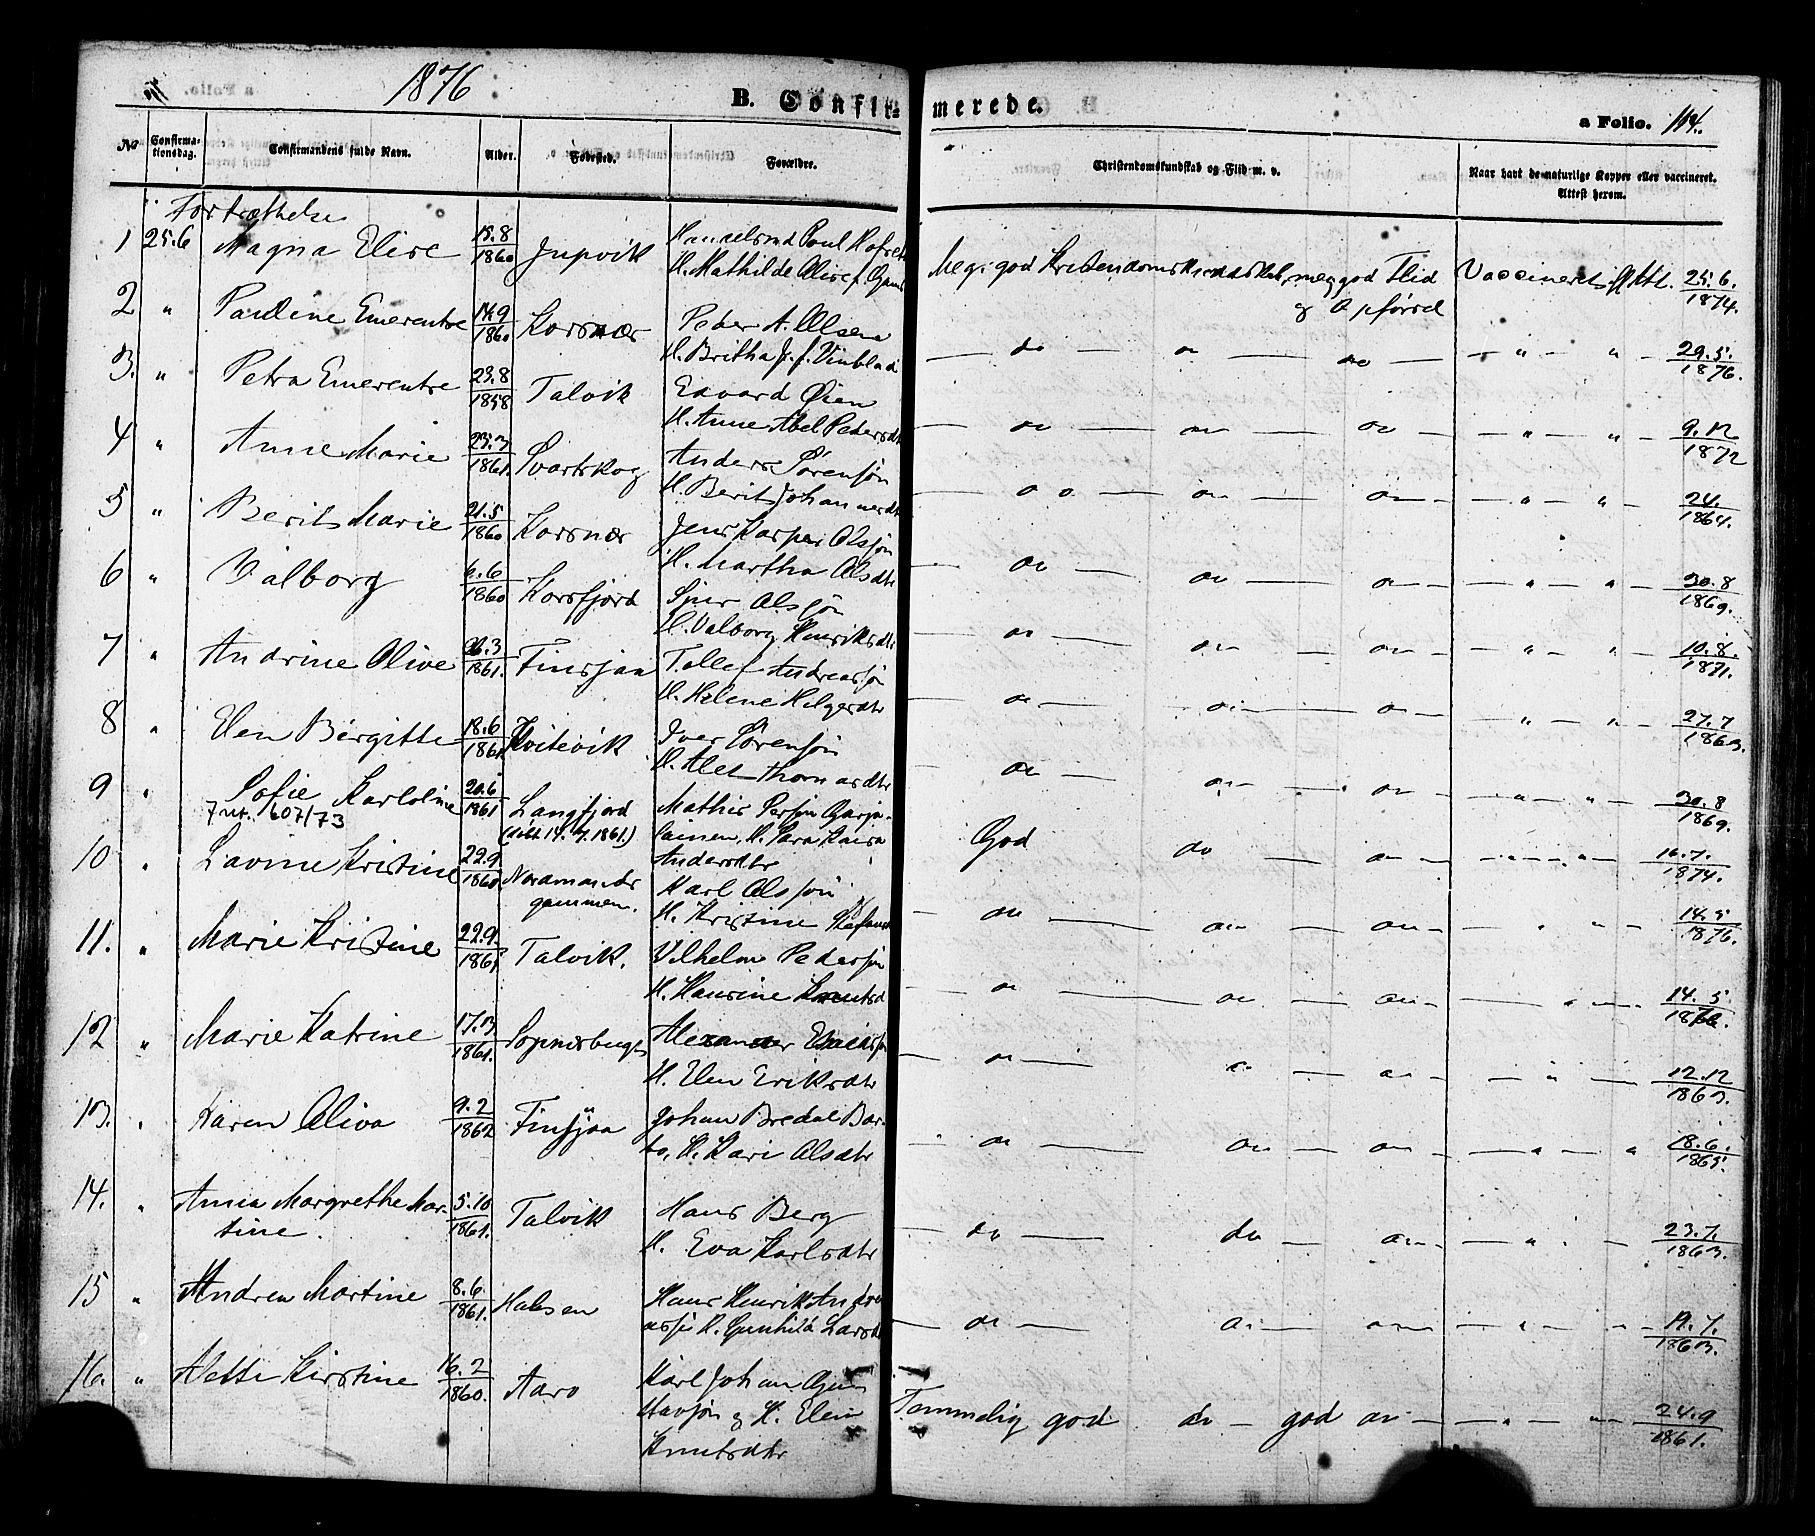 1876
B. Confir=
merede.
a Folio. 114.
No
Confirma-
tionsdag.
Confirmandens fulde Navn.
Alder.
Fødested.
Forældre.
Christendomskundskab og Flid m. v.
Naar havt de naturlige Kopper eller vaccineret.
Attest herom.
1 25.6 Magna Elise 18.8 1860 Jupvik
H. Mathilde Olive f.
Meg. god Kristendomskundskab, meg god Flid Vaccineret 25.6.
og Opførsel 1874.
2 " Pauline Emerentse 14.9 1860 Korsnær Peder A. Olsen
H. Britha J. f. Vinblad
— do — do — do — " — " — 29.5. 1876.
3. " Petra Emerentse 23.8 1858 Talvik Edvard Øien
H. Anne Abel Pedersdt
— do — do — do — " — " — 9.12 1872
4 " Anne Marie 23.3 1861. Svartskog Anders Sørensøn
H. Berit Johannesdt
— do — do — do — " — " — 24. 1864.
5 " Berit Marie 21.5 1860 Korsnær Jens Kasper Olsøn
H. Martha Olsdtr
— do — do — do — " — " — 30.8 1869.
6 " Valborg 6.6 1860 Korsfjord Olsøn
H. Valborg Henriksdtr
— do — do — do — " — " — 10.8. 1871.
7 " Andrine Olive 26.3 1861. Finsjaa Tollef Andreassøn
H. Helene Helgesdtr
— do — do — do — " — " — 27.7 1863.
8 " Elen Birgitte 18.6 1861 Kvitevik Iver Sørensøn
H. Alet Thomasdtr
— do — do — do — " — " — 30.8 1869.
9 " Sofie Karoline 20.6 1861 Langfjord Mathis Persøn
607/73 (døbt 14.7.1861.)
Andersdtr
God do — do — " — " — 16.7. 1874.
10 " Lavine Kristine 22.9 1860 Nordmands-
gammen. Karl Olsøn
H. Kristine
— do — do — do — " — " — 14.5 1876.
11. " Marie Kristine 22.9. 1861 Talvik. Vilhelm Pedersøn
H. Hansine Knutsd
— do — do — do — " — " — 14.5
12 " Marie Katrine 17.3 1861. Alexander
H. Elen Eriksdtr
— do — do — do — " — 12.12 1863.
13. " Karen Oliva 9.2 1862 Finsjaa Johan Bredal Bar-
bo, H. Kari Olsdtr
— do — do — do — " — " 18.6. 1865.
14. " Anna Margrethe Mar- 5.10 1861. Talvik Hans Berg
tine. H. Eva Karlsdtr
— do — do — do — " — 23.7. 1863.
15 " Andrea Martine 8.6. 1861. Halsen Hans Henrik Andre
assøn H. Gunhild Larsdt
— do — do — do — " — 19.7. 1863.
16. " Nette Kirstine 16.2 1860. Aarø Karl Johan
H. Elen
Knutsdtr
Temmelig god do — god do — — " — " — 24.9 1861.